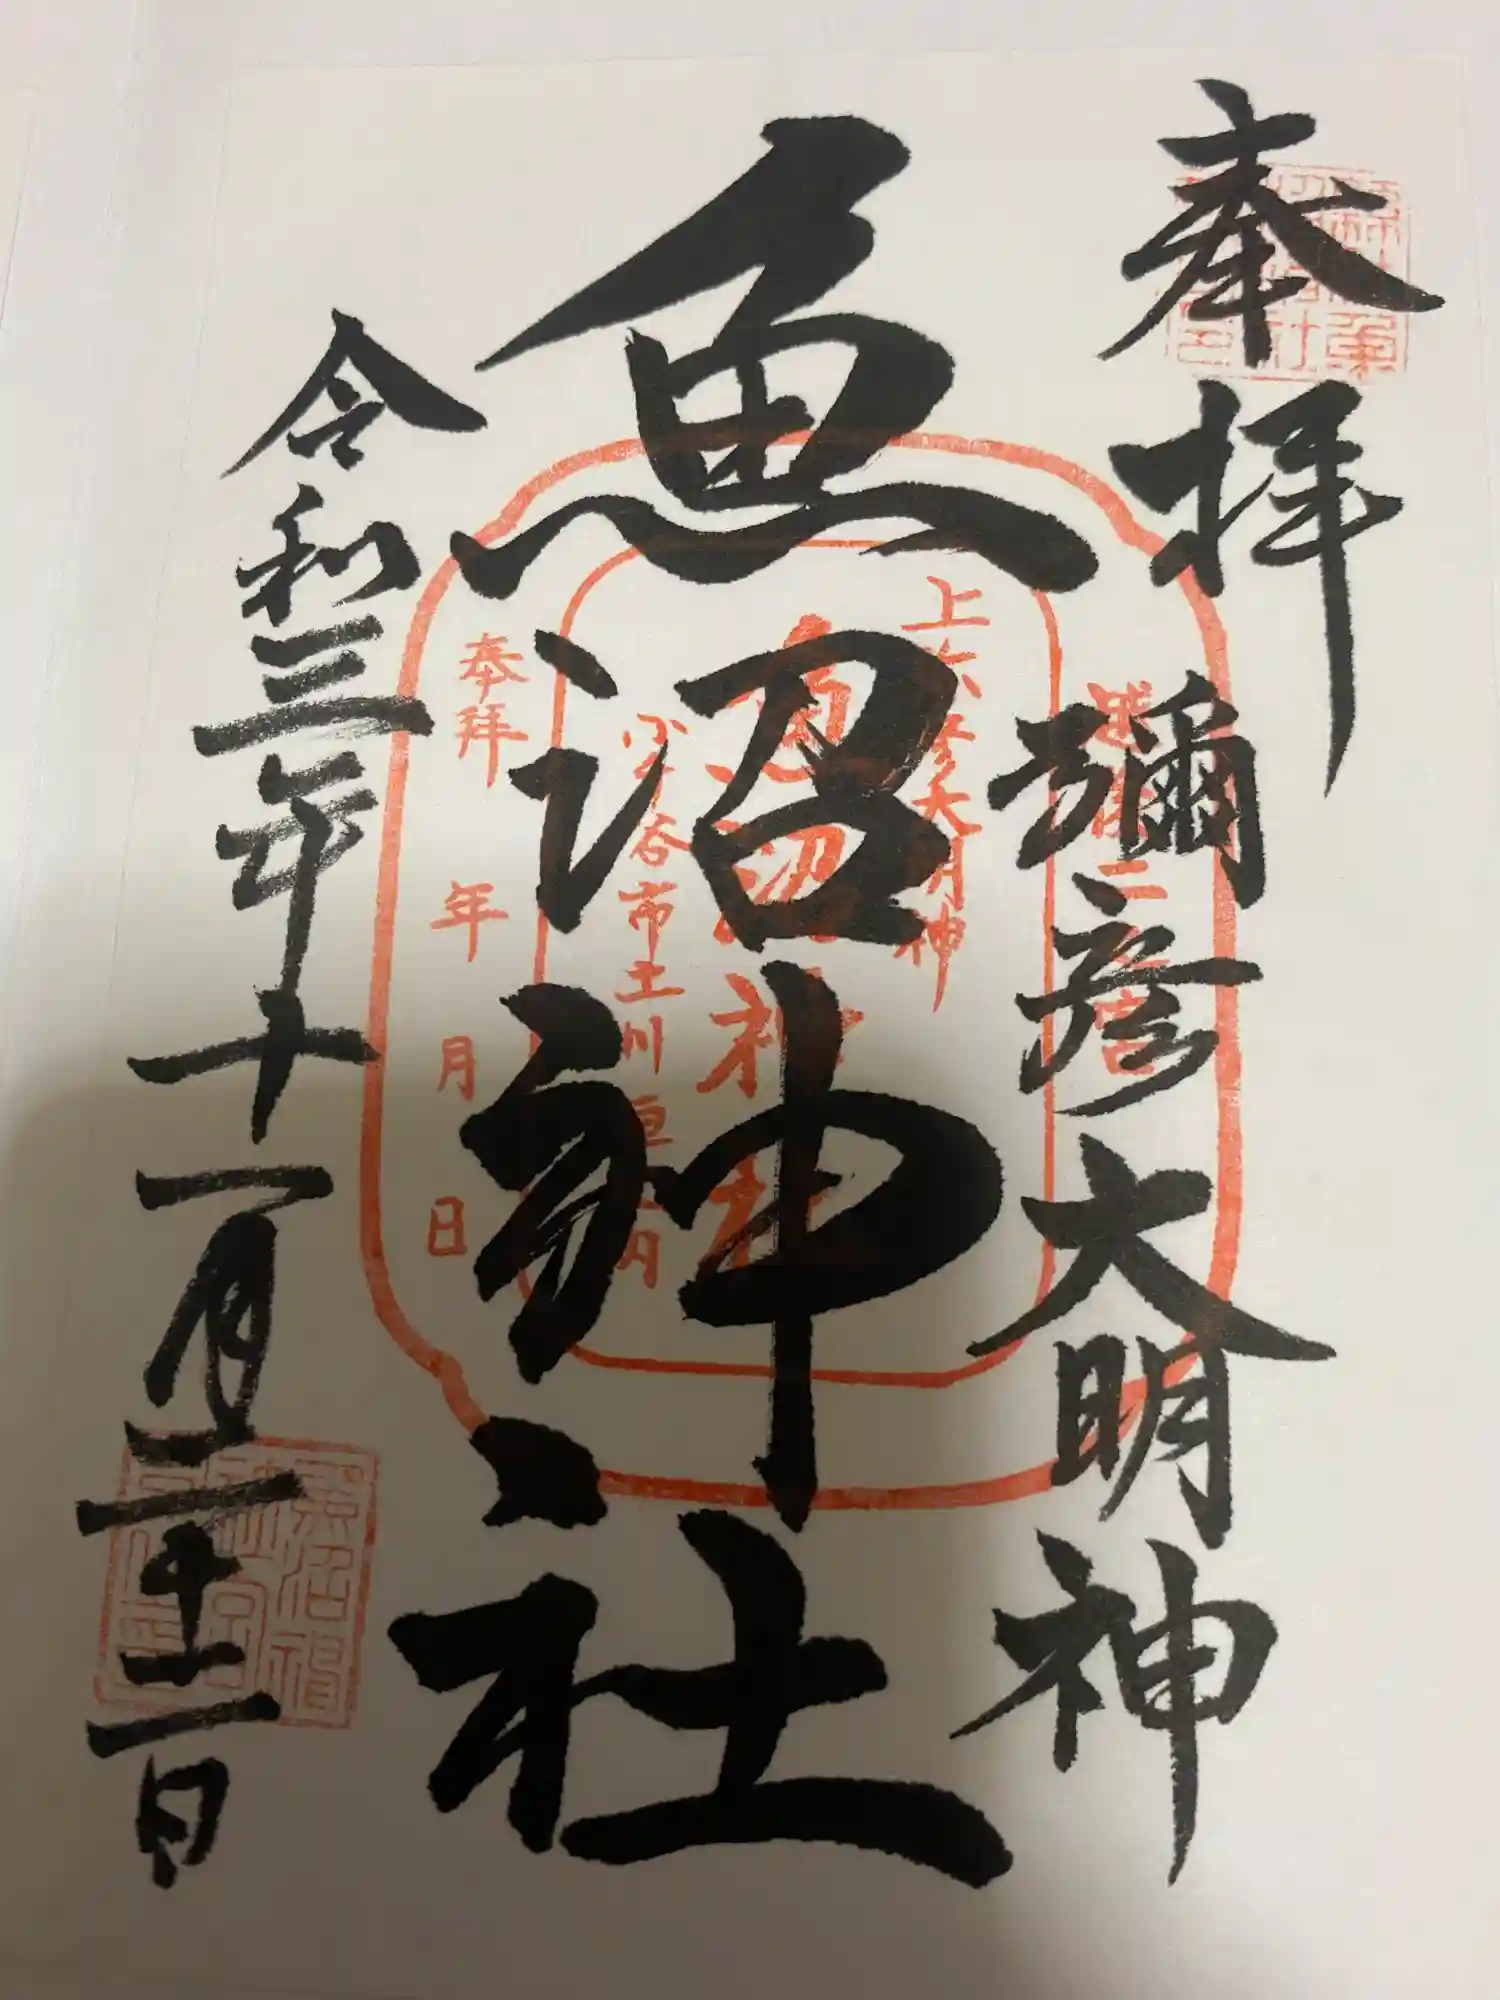 奉拝
彌彦大明神
魚沼神社
令和三年十一月二十二日
大明神
魚沼神社
小千谷市土川
奉拝 年 月 日